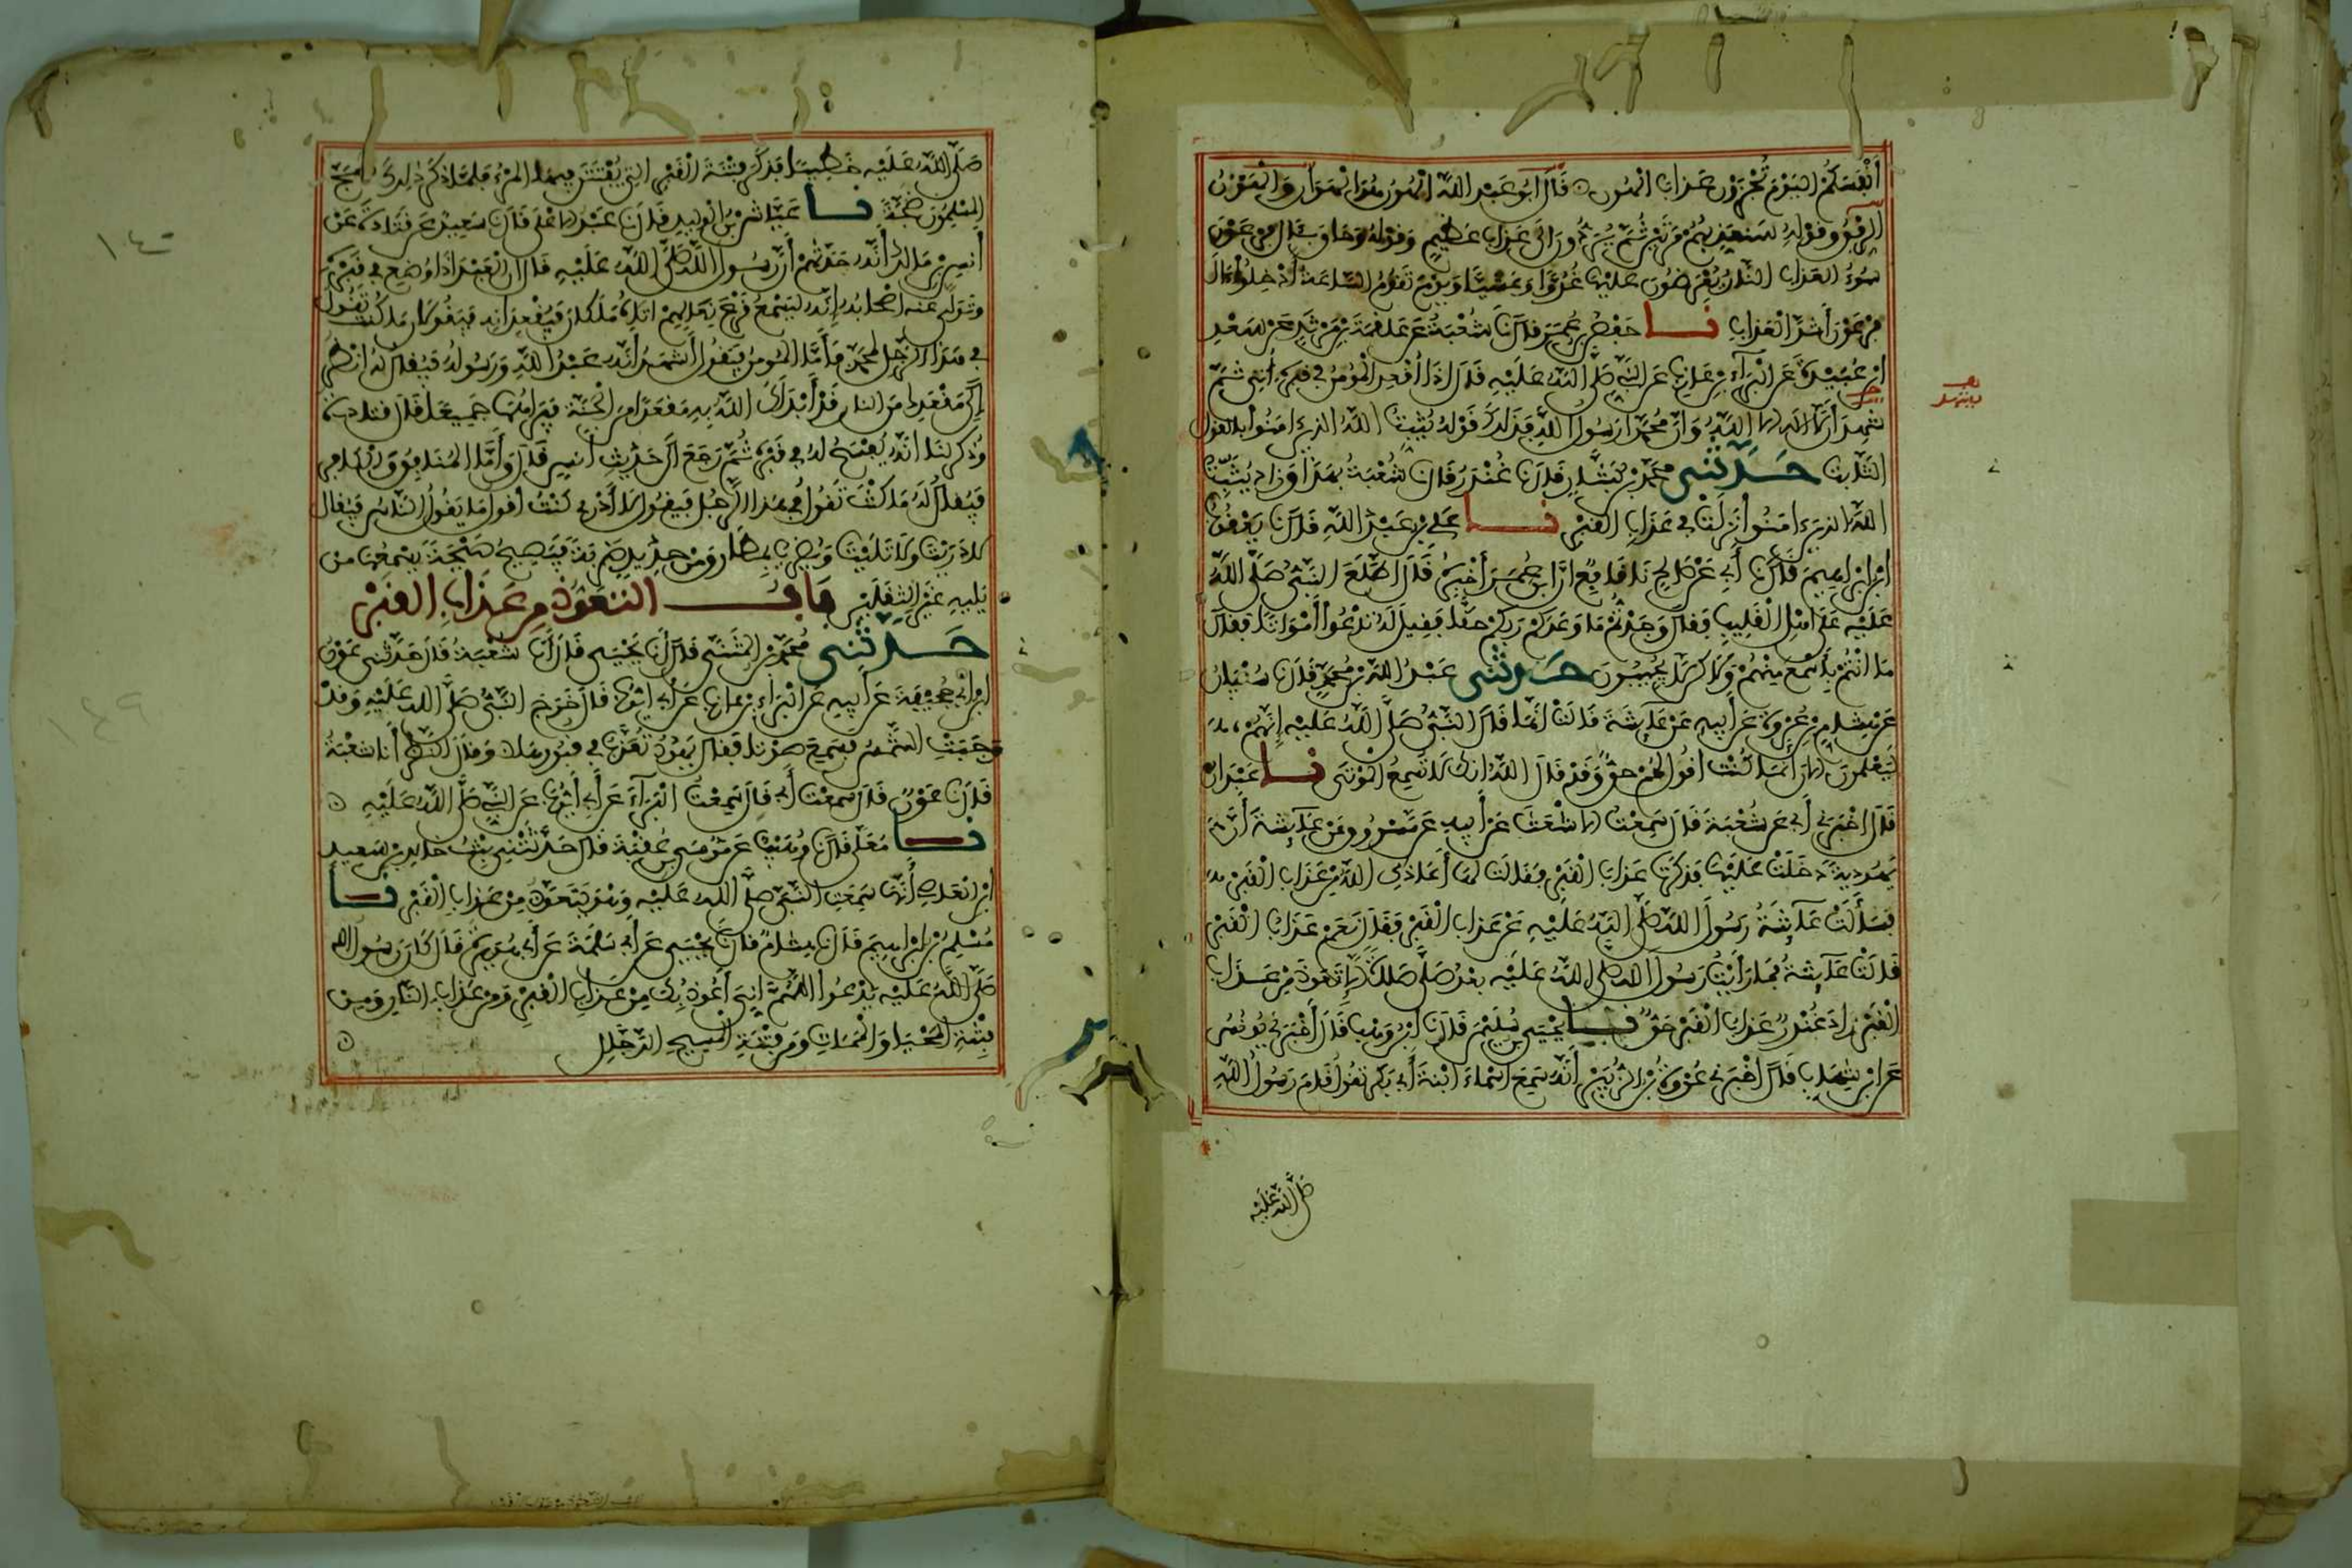 أَنْفُسَكُمُ الْيَوْمَ تُجْزَوْنَ عَذَابَ الْهُونِ قَالَ أَبُو عَبْدِ اللَّهِ الْهُونُ هُوَ الْهَوَانُ وَالْهَوْنُ
الرِّفْقُ وَقَوْلِهِ سَنُعَذِّبُهُمْ مَرَّتَيْنِ ثُمَّ يُرَدُّونَ إِلَى عَذَابٍ عَظِيمٍ وَقَوْلُهُ وَحَاقَ بِآلِ فِرْعَوْنَ
سُوءُ الْعَذَابِ النَّارُ يُعْرَضُونَ عَلَيْهَا غُدُوًّا وَعَشِيًّا وَيَوْمَ تَقُومُ السَّاعَةُ أَدْخِلُوا آلَ
فِرْعَوْنَ أَشَدَّ الْعَذَابِ نا حَفْصُ بْنُ عُمَرَ قَالَ نَا شُعْبَةُ عَنْ عَلْقَمَةَ بْنِ مَرْثَدٍ عَنْ سَعْدِ
ابْنِ عُبَيْدَةَ عَنِ الْبَرَاءِ بْنِ عَازِبٍ عَنِ النَّبِيِّ صَلَّى اللَّهُ عَلَيْهِ قَالَ إِذَا أُقْعِدَ الْمُؤْمِنُ فِي قَبْرِهِ أُتِيَ ثُمَّ
شَهِدَ أَنْ لَا إِلَهَ إِلَّا اللَّهُ وَأَنَّ مُحَمَّدًا رَسُولُ اللَّهِ فَذَلِكَ قَوْلُهُ يُثَبِّتُ اللَّهُ الَّذِينَ آمَنُوا بِالْقَوْلِ
الثَّابِتِ حَدَّثَنِي مُحَمَّدُ بْنُ بَشَّارٍ قَالَ نَا غُنْدَرٌ قَالَ نَا شُعْبَةُ بِهَذَا وَزَادَ يُثَبِّتُ
اللَّهُ الَّذِينَ آمَنُوا نَزَلَتْ فِي عَذَابِ الْقَبْرِ نا عَلِيُّ بْنُ عَبْدِ اللَّهِ قَالَ نَا يَعْقُوبُ
ابْنُ إِبْرَاهِيمَ قَالَ نَا أَبِي عَنْ صَالِحٍ نَا نَافِعٌ أَنَّ ابْنَ عُمَرَ أَخْبَرَهُ قَالَ اطَّلَعَ النَّبِيُّ صَلَّى اللَّهُ
عَلَيْهِ عَلَى أَهْلِ الْقَلِيبِ فَقَالَ وَجَدْتُمْ مَا وَعَدَكُمْ رَبُّكُمْ حَقًّا فَقِيلَ لَهُ تَدْعُوا أَمْوَاتًا فَقَالَ
مَا أَنْتُمْ بِأَسْمَعَ مِنْهُمْ وَلَكِنْ لَا يُجِيبُونَ حَدَّثَنِي عَبْدُ اللَّهِ بْنُ مُحَمَّدٍ قَالَ نَا سُفْيَانُ
عَنْ هِشَامِ بْنِ عُرْوَةَ عَنْ أَبِيهِ عَنْ عَائِشَةَ قَالَتْ إِنَّمَا قَالَ النَّبِيُّ صَلَّى اللَّهُ عَلَيْهِ إِنَّهُمْ
لَيَعْلَمُونَ الْآنَ أَنَّمَا كُنْتُ أَقُولُ لَهُمْ حَقٌّ وَقَدْ قَالَ اللَّهُ إِنَّكَ لَا تُسْمِعُ الْمَوْتَى نا عَبْدَانُ
قَالَ أَخْبَرَنِي أَبِي عَنْ شُعْبَةَ قَالَ سَمِعْتُ الْأَشْعَثَ عَنْ أَبِيهِ عَنْ مَسْرُوقٍ عَنْ عَائِشَةَ أَنَّ
يَهُودِيَّةً دَخَلَتْ عَلَيْهَا فَذَكَرَتْ عَذَابَ الْقَبْرِ فَقَالَتْ لَهَا أَعَاذَكِ اللَّهُ مِنْ عَذَابِ الْقَبْرِ
فَسَأَلَتْ عَائِشَةُ رَسُولَ اللَّهِ صَلَّى اللَّهُ عَلَيْهِ عَنْ عَذَابِ الْقَبْرِ فَقَالَ نَعَمْ عَذَابُ الْقَبْرِ
قَالَتْ عَائِشَةُ فَمَا رَأَيْتُ رَسُولَ اللَّهِ صَلَّى اللَّهُ عَلَيْهِ بَعْدُ صَلَّى صَلَاةً إِلَّا تَعَوَّذَ مِنْ عَذَابِ
الْقَبْرِ زَادَ غُنْدَرٌ عَذَابُ الْقَبْرِ حَقٌّ نا يَحْيَى بْنُ سُلَيْمَانَ قَالَ نَا ابْنُ وَهْبٍ قَالَ أَخْبَرَنِي يُونُسُ
عَنِ ابْنِ شِهَابٍ قَالَ أَخْبَرَنِي عُرْوَةُ بْنُ الزُّبَيْرِ أَنَّهُ سَمِعَ أَسْمَاءَ ابْنَةَ أَبِي بَكْرٍ تَقُولُ قَامَ رَسُولُ اللَّهِ
صَلَّى اللَّهُ عَلَيْهِ
صَلَّى اللَّهُ عَلَيْهِ خَطِيبًا فَذَكَرَ فِتْنَةَ الْقَبْرِ الَّتِي يُفْتَتَنُ فِيهَا الْمَرْءُ فَلَمَّا ذَكَرَ ذَلِكَ ضَجَّ
الْمُسْلِمُونَ ضَجَّةً نا عَيَّاشُ بْنُ الْوَلِيدِ قَالَ نَا عَبْدُ الْأَعْلَى قَالَ نَا سَعِيدٌ عَنْ قَتَادَةَ عَنْ
أَنَسِ بْنِ مَالِكٍ أَنَّهُ حَدَّثَهُمْ أَنَّ رَسُولَ اللَّهِ صَلَّى اللَّهُ عَلَيْهِ قَالَ إِنَّ الْعَبْدَ إِذَا وُضِعَ فِي قَبْرِهِ
وَتَوَلَّى عَنْهُ أَصْحَابُهُ إِنَّهُ لَيَسْمَعُ قَرْعَ نِعَالِهِمْ أَتَاهُ مَلَكَانِ فَيُقْعِدَانِهِ فَيَقُولَانِ مَا كُنْتَ تَقُولُ
فِي هَذَا الرَّجُلِ لِمُحَمَّدٍ فَأَمَّا الْمُؤْمِنُ فَيَقُولُ أَشْهَدُ أَنَّهُ عَبْدُ اللَّهِ وَرَسُولُهُ فَيُقَالُ لَهُ انْظُرْ
إِلَى مَقْعَدِكَ مِنَ النَّارِ قَدْ أَبْدَلَكَ اللَّهُ بِهِ مَقْعَدًا مِنَ الْجَنَّةِ فَيَرَاهُمَا جَمِيعًا قَالَ قَتَادَةُ
وَذُكِرَ لَنَا أَنَّهُ يُفْسَحُ لَهُ فِي قَبْرِهِ ثُمَّ رَجَعَ إِلَى حَدِيثِ أَنَسٍ قَالَ وَأَمَّا الْمُنَافِقُ وَالْكَافِرُ
فَيُقَالُ لَهُ مَا كُنْتَ تَقُولُ فِي هَذَا الرَّجُلِ فَيَقُولُ لَا أَدْرِي كُنْتُ أَقُولُ مَا يَقُولُ النَّاسُ فَيُقَالُ
لَا دَرَيْتَ وَلَا تَلَيْتَ وَيُضْرَبُ بِمَطَارِقَ مِنْ حَدِيدٍ ضَرْبَةً فَيَصِيحُ صَيْحَةً يَسْمَعُهَا مَنْ
يَلِيهِ غَيْرَ الثَّقَلَيْنِ بَابُ التَّعَوُّذِ مِنْ عَذَابِ الْقَبْرِ
حَدَّثَنِي مُحَمَّدُ بْنُ الْمُثَنَّى قَالَ نَا يَحْيَى قَالَ نَا شُعْبَةُ قَالَ حَدَّثَنِي عَوْنُ
ابْنُ أَبِي جُحَيْفَةَ عَنْ أَبِيهِ عَنِ الْبَرَاءِ بْنِ عَازِبٍ عَنْ أَبِي أَيُّوبَ قَالَ خَرَجَ النَّبِيُّ صَلَّى اللَّهُ عَلَيْهِ وَقَدْ
وَجَبَتِ الشَّمْسُ فَسَمِعَ صَوْتًا فَقَالَ يَهُودُ تُعَذَّبُ فِي قُبُورِهَا وَقَالَ النَّضْرُ أَنَا شُعْبَةُ
قَالَ نَا عَوْنٌ قَالَ سَمِعْتُ أَبِي قَالَ سَمِعْتُ الْبَرَاءَ عَنْ أَبِي أَيُّوبَ عَنِ النَّبِيِّ صَلَّى اللَّهُ عَلَيْهِ
نا مُعَلًّى قَالَ نَا وُهَيْبٌ عَنْ مُوسَى بْنِ عُقْبَةَ قَالَ حَدَّثَتْنِي بِنْتُ خَالِدِ بْنِ سَعِيدِ
ابْنِ الْعَاصِ أَنَّهَا سَمِعَتِ النَّبِيَّ صَلَّى اللَّهُ عَلَيْهِ وَهُوَ يَتَعَوَّذُ مِنْ عَذَابِ الْقَبْرِ نا
مُسْلِمُ بْنُ إِبْرَاهِيمَ قَالَ نَا هِشَامٌ قَالَ نَا يَحْيَى عَنْ أَبِي سَلَمَةَ عَنْ أَبِي هُرَيْرَةَ قَالَ كَانَ رَسُولُ اللَّهِ
صَلَّى اللَّهُ عَلَيْهِ يَدْعُوا اللَّهُمَّ إِنِّي أَعُوذُ بِكَ مِنْ عَذَابِ الْقَبْرِ وَمِنْ عَذَابِ النَّارِ وَمِنْ
فِتْنَةِ الْمَحْيَا وَالْمَمَاتِ وَمِنْ فِتْنَةِ الْمَسِيحِ الدَّجَّالِ